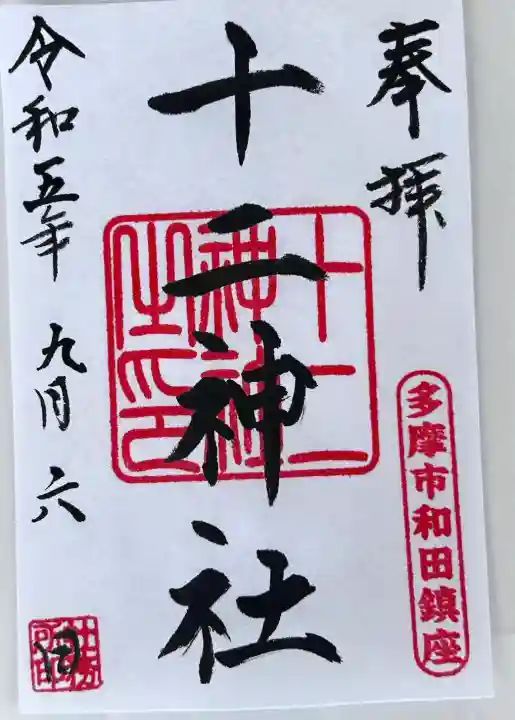 奉拝
多摩市和田鎮座
十二神社
十二神社之印
令和五年 九月 六日
社務所印